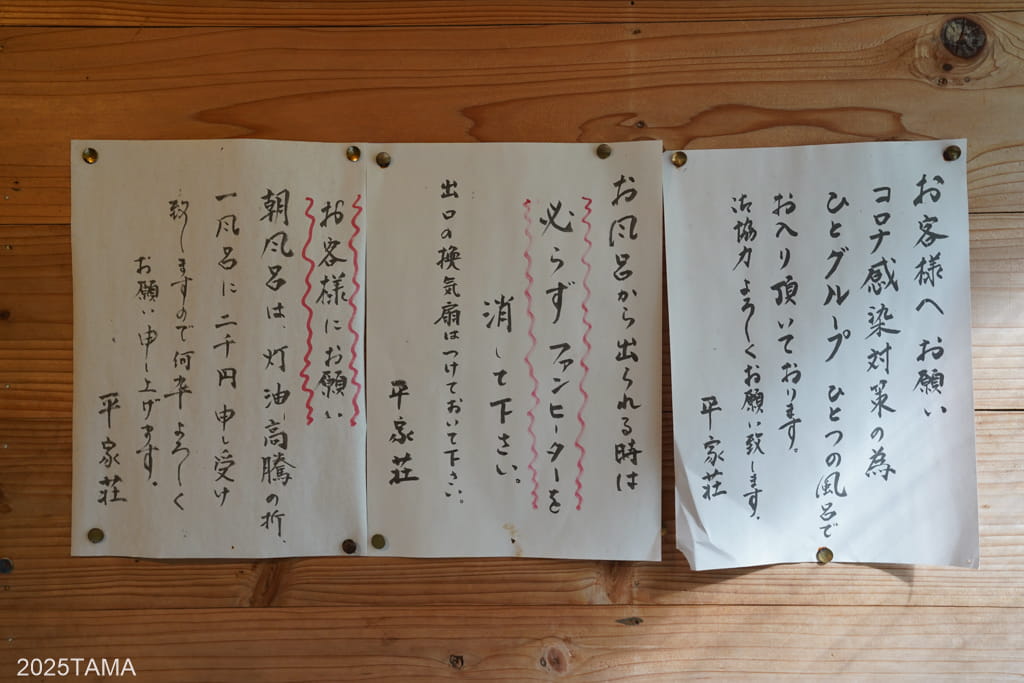 お客様へお願い
コロナ感染対策の為
ひとグループひとつの風呂で
お入り頂いております。
御協力よろしくお願い致します。
平家荘
お風呂から出られる時は
必らずファンヒーターを
消して下さい。
出口の換気扇はつけておいて下さい。
平家荘
お客様にお願い
朝風呂は、灯油高騰の折、
一風呂に二千円申し受け
致しますので何卒よろしく
お願い申し上げます。
平家荘
2025TAMA